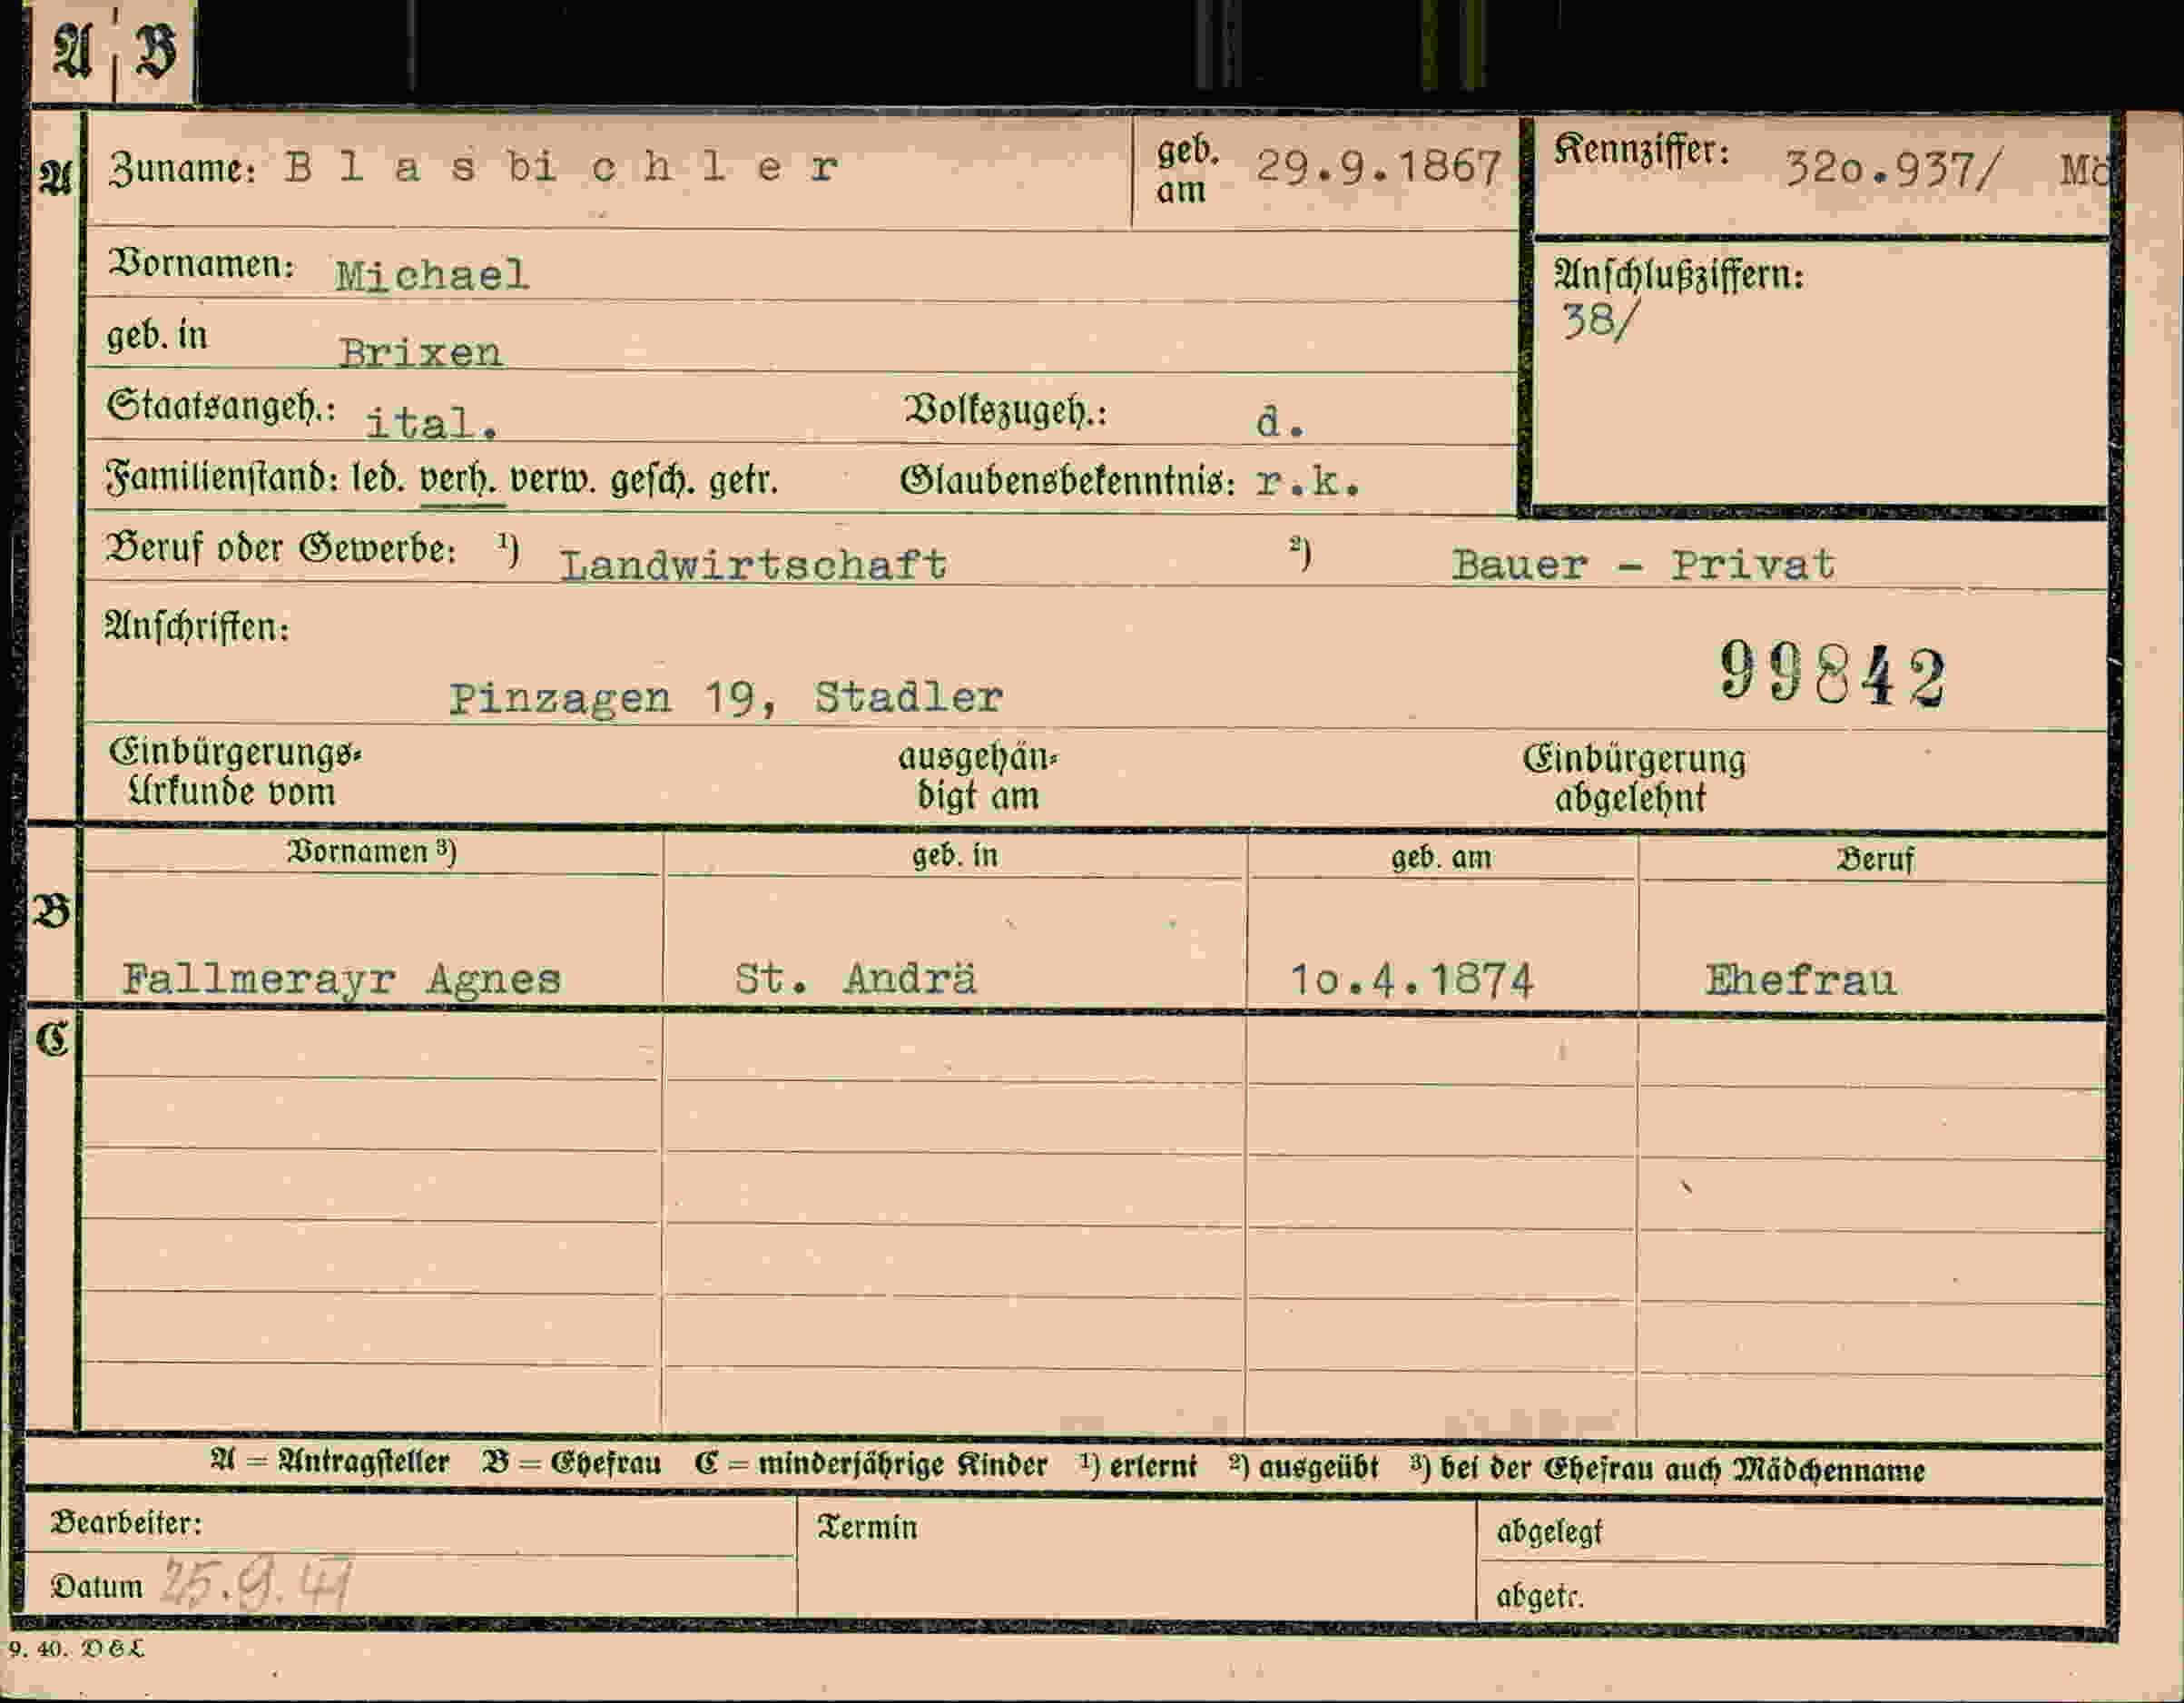 A B
A Zuname: Blasbichler geb. am 29.9.1867 Kennziffer: 32o.937/ Mö
Vornamen: Michael
Anschlußziffern:
38/
geb. in Brixen
Staatsangeh.: ital. Volkszugeh.: d.
Familienstand: led. verh. verw. gesch. getr. Glaubensbekenntnis: r.k.
Beruf oder Gewerbe: ¹) Landwirtschaft ²) Bauer - Privat
Anschriften:
99842
Pinzagen 19, Stadler
Einbürgerungs- ausgehän- Einbürgerung
Urkunde vom digt am abgelehnt
Vornamen ³) geb. in geb. am Beruf
B
Fallmerayr Agnes St. Andrä 1o.4.1874 Ehefrau
C
A = Antragsteller B = Ehefrau C = minderjährige Kinder ¹) erlernt ²) ausgeübt ³) bei der Ehefrau auch Mädchenname
Bearbeiter: Termin abgelegt
Datum 25.9.41 abgetr.
9. 40. D&L